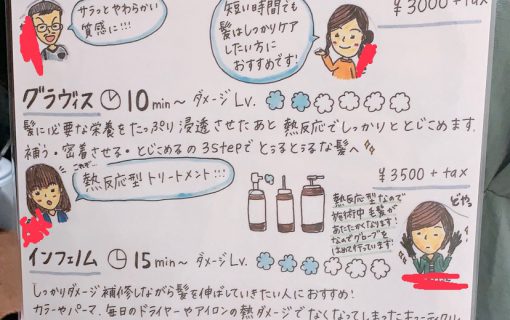 サラッとやわらかい
質感に!!!
短い時間でも
髪はしっかりケア
したい方に
おすすめです!
¥3000+tax
グラヴィス 10min〜 ダメージLv.
髪に必要な栄養をたっぷり浸透させたあと 熱反応でしっかりととじこめます.
補う・密着させる・とじこめるの3stepでとぅるとぅるな髪へ
¥3500+tax
これぞ…
熱反応型トリートメント!!!
熱反応型なので
施術中毛髪が
あたたかくなります!
なのでグローブを
はめて行っています!
どやっ
インフェノム 15min〜 ダメージLv.
しっかりダメージ補修しながら髪を伸ばしていきたい人におすすめ!
カラーやパーマ、毎日のドライヤーやアイロンの熱ダメージでなくなってしまったキューティクル